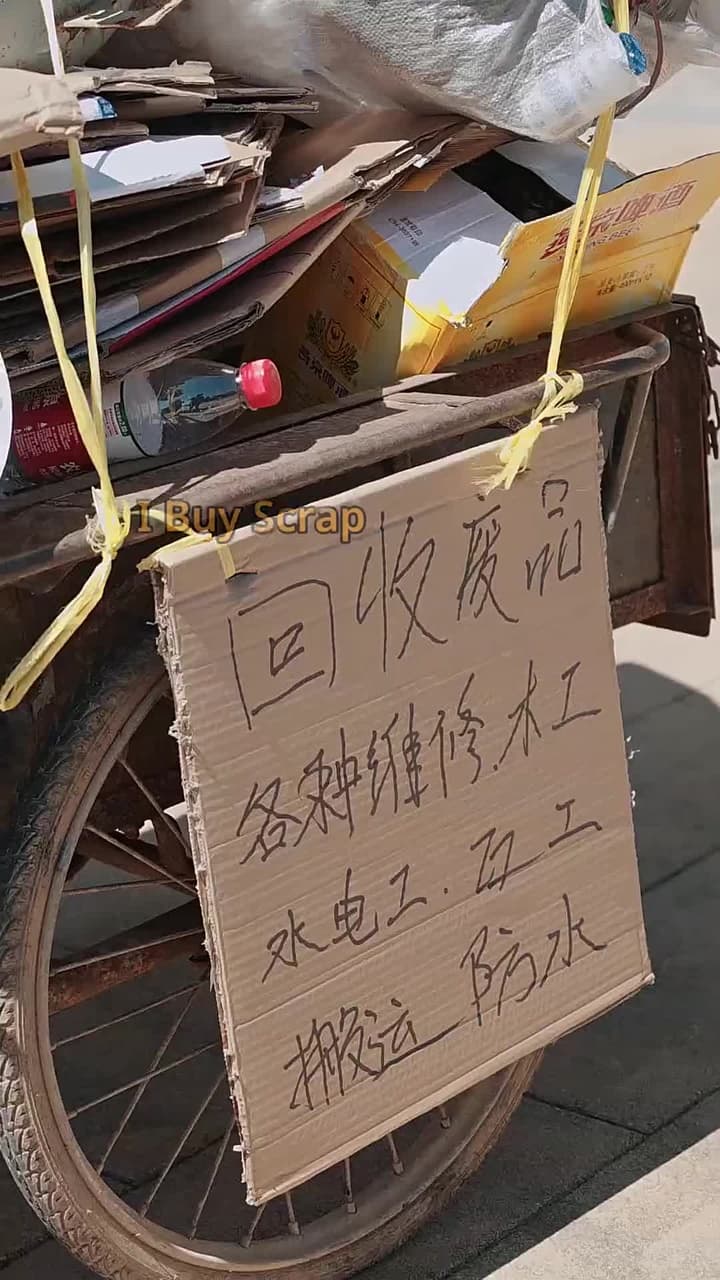 燕京啤酒
I Buy Scrap
回收废品
各种维修.木工
水电工.瓦工
搬运 防水